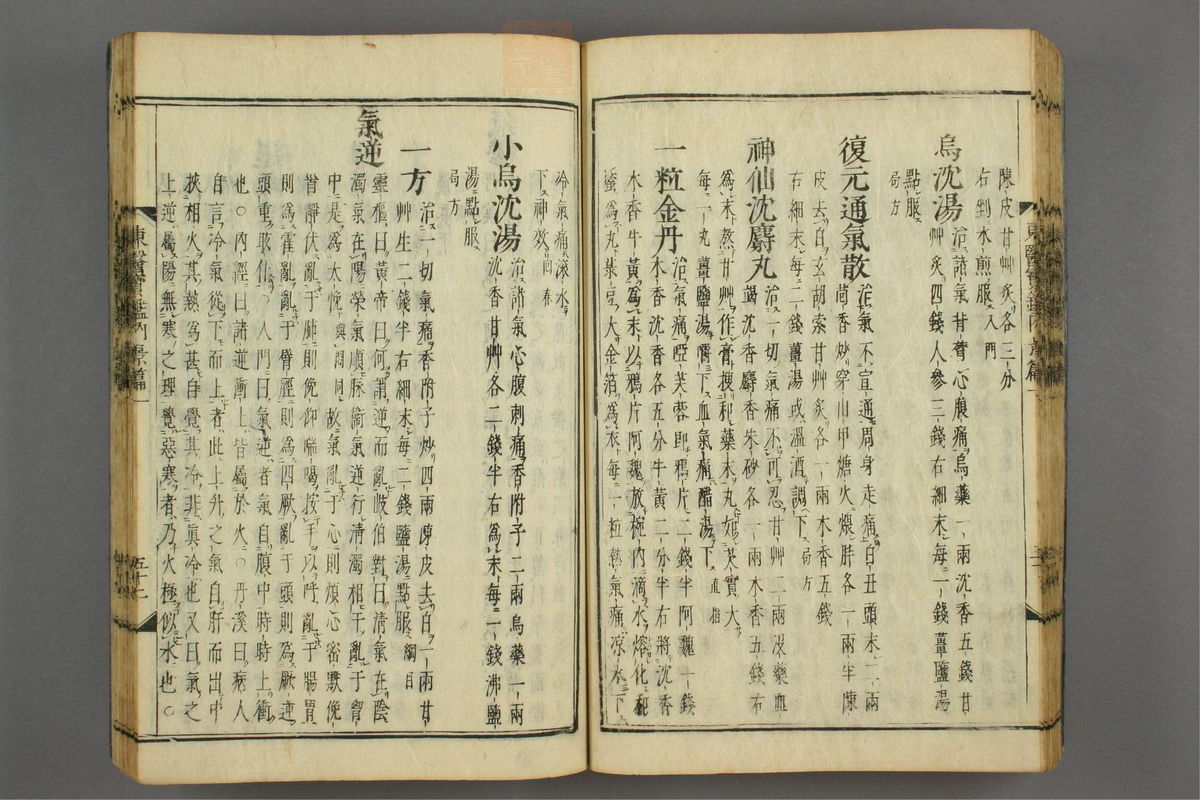 陳皮甘艸炙各三分
右剉水煎服入門
烏沈湯治諸氣背膂心腹痛烏藥一兩沈香五錢甘
艸炙四錢人參三錢右細末每一錢薑鹽湯
點服
局方
復元通氣散治氣不宣通周身走痛白丑頭末二兩
茴香炒穿山甲煻火煨胖各一兩半陳
皮去白玄胡索甘艸炙各一兩木香五錢
右細末每二錢薑湯或溫酒調下局方
神仙沈麝丸治一切氣痛不可忍甘艸二兩沒藥血
竭沈香麝香朱砂各一兩木香五錢右
爲末熬甘艸作膏搜和藥末丸如芡實大
每一丸薑鹽湯嚼下血氣痛醋湯下直指
一粒金丹治氣痛啞芙蓉卽鴉片二錢半阿魏一錢
木香沈香各五分牛黃二分半右將沈香
木香牛黃爲末以鴉片阿魏放椀內滴水熔化和
蜜爲丸菉豆大金箔爲衣每一粒熱氣痛凉水下
冷氣痛滾水
下神效回春
小烏沈湯治諸氣心腹刺痛香附子二兩烏藥一兩
沈香甘艸各二錢半右爲末每一錢沸鹽
湯點服
局方
一方治一切氣痛香附子炒四兩陳皮去白一兩甘
艸生二錢半右細末每二錢鹽湯點服綱目
氣逆
靈樞曰黃帝曰何謂逆而亂岐伯對曰清氣在陰
濁氣在陽榮氣順脉衛氣逆行清濁相干亂于胷
中是爲太悗與悶同故氣亂于心則煩心密默俛
首靜伏亂于肺則俛仰喘喝按手以呼亂于腸胃
則爲霍亂亂于臂脛則爲四厥亂于頭則爲厥逆
頭重眩仆○入門曰氣逆者氣自腹中時時上衝
也○內經曰諸逆衝上皆屬於火○丹溪曰病人
自言冷氣從下而上者此上升之氣自肝而出中
挾相火其熱爲甚自覺其冷非眞冷也又曰氣之
上逆屬陽無寒之理覺惡寒者乃火極似水也○
東醫寶鑑內景篇一
五十二